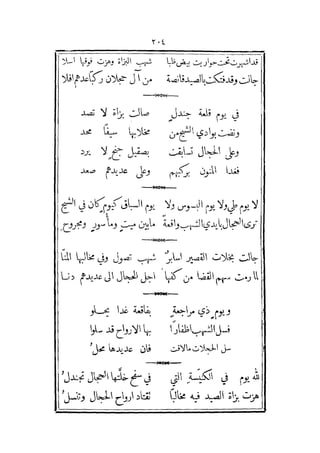 ٢٠٤
قد اشهرت تحت حواريت بيض ظبا شهب البزاة وهزت فوقها اسلا
جاءت وقد فتكت بالصيد قانصة من آل حجلان ركبا عدهم افلا
في يوم قلعة جندل صالت بزاة لا تصد
ونضت بوادي الشيح من مخلابها سيفًا محد
وعلى الحجال تسابقت بصقيل جنح لا يرد
فغدا المنون بركبهم وعلى عديدهم صعد
لا يوم طي ولا يوم البسوس ولا يوم السباق كيوم كان في الشيح
ترى الحجال بايدي الشهب واقعةً ما بين ميت ومأسور ومجروح
جالت بخلات القصير اسابر شهب تصول وفي مخالبها المنا
لما رمت سهم القضا من كفها اجل الحجال الى عديدهم دنا
ويوم ذي مراجعة بفاقعة غدا يحلو
فسل الشهب اظفارًا بها الارواح قد سلوا
سل الحجلات ما لاقت فان عديدها محل
لله يوم في الكنيسة التي في سفح خلتها الحجال تجندل
هزت بزاة الصيد فيه مخالبًا تقتاد ارواح الحجال وتنسل